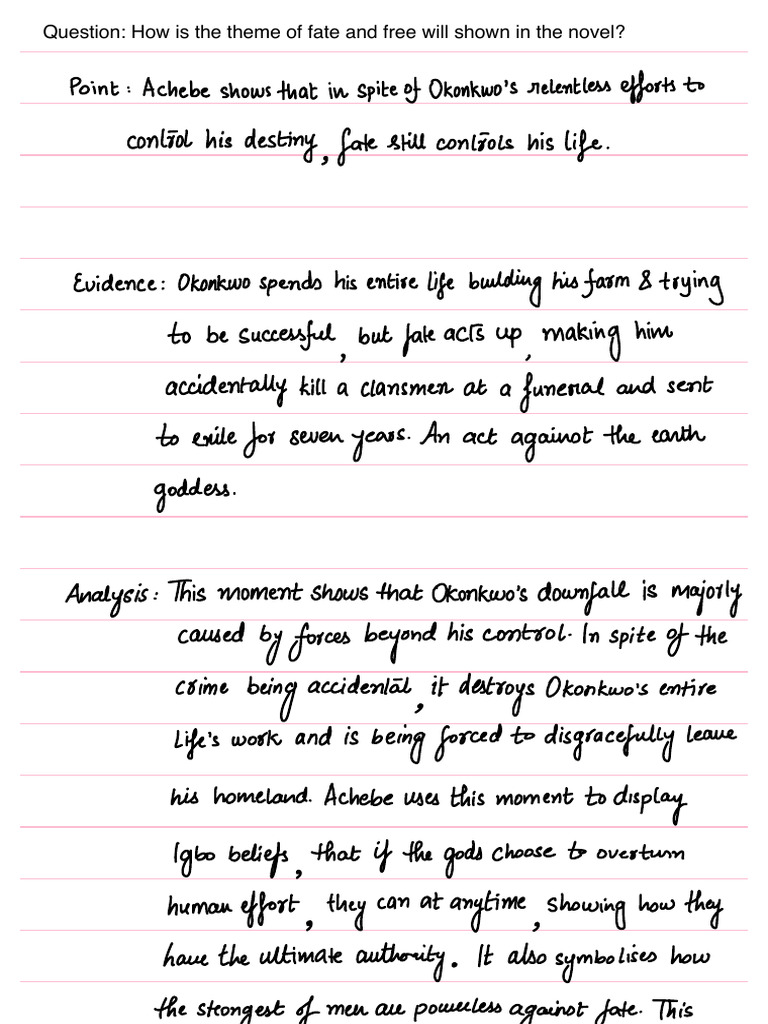 Question: How is the theme of fate and free will shown in the novel?
Point: Achebe shows that in spite of Okonkwo's relentless efforts to
control his destiny, fate still controls his life.
Evidence: Okonkwo spends his entire life building his farm & trying
to be successful, but fate acts up, making him
accidentally kill a clansmen at a funeral and sent
to exile for seven years. An act against the earth
goddess.
Analysis: This moment shows that Okonkwo's downfall is majorly
caused by forces beyond his control. In spite of the
crime being accidental, it destroys Okonkwo's entire
life's work and is being forced to disgracefully leave
his homeland. Achebe uses this moment to display
Igbo beliefs, that if the gods choose to overturn
human effort, they can at anytime, showing how they
have the ultimate authority. It also symbolises how
the strongest of men are powerless against fate. This